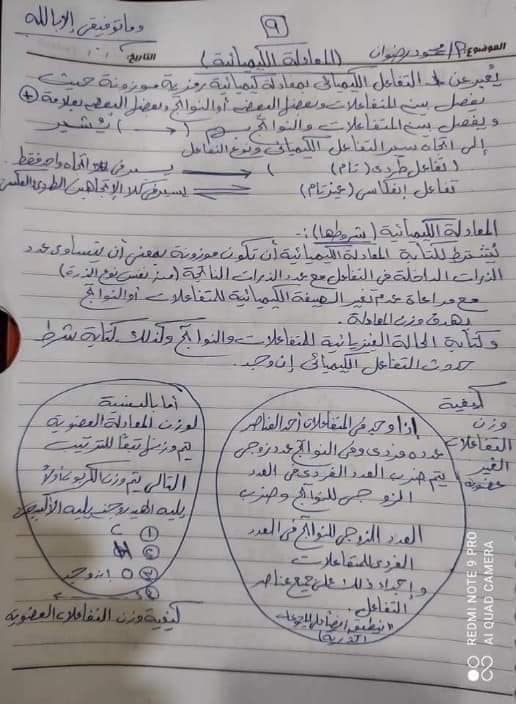 ٩
وما توفيقي إلا بالله
الموضوع / محمود رضوان
(المعادلة الكيميائية)
التاريخ:
يُعبر عن التفاعل الكيميائي بمعادلة كيميائية رمزية موزونة حيث
يفصل بين المتفاعلات وبعضها البعض أو النواتج وبعضها البعض بعلامة +
ويفصل بين المتفاعلات والنواتج بسهم (→) يُشير
إلى اتجاه سير التفاعل الكيميائي ونوع التفاعل
(تفاعل طردي (تام) → يسير في اتجاه واحد فقط
تفاعل إنعكاسي (غير تام) ⇌ يسير في كلا الإتجاهين الطردي والعكسي
المعادلة الكيميائية (شروطها):-
يُشترط لكتابة المعادلة الكيميائية أن تكون موزونة بمعنى أن يتساوى عدد
الذرات الداخلة في التفاعل مع عدد الذرات الناتجة (من نفس نوع الذرة)
مع مراعاة عدم تغير الصيغة الكيميائية للمتفاعلات أو النواتج
بهدف وزن المعادلة.
وكتابة الحالة الفيزيائية للمتفاعلات والنواتج وكذلك كتابة شرط
حدوث التفاعل الكيميائي إن وجد.
كيفية
وزن
التفاعلات
الغير
عضوية
إذا وجد في المتفاعلات أحد العناصر
عدده فردي وفي النواتج عدد زوجي
يتم ضرب العدد الفردي في العدد
الزوجي للنواتج وضرب
العدد الزوجي للنواتج في العدد
الفردي للمتفاعلات
وإجراء ذلك على جميع عناصر
التفاعل.
أما بالنسبة
لوزن المعادلة العضوية
يتم وزنها تبعًا للترتيب
التالي يتم وزن الكربون أولًا
يليه الهيدروجين يليه الأكسجين
① C
② H
③ O إن وجد
كيفية وزن التفاعلات العضوية
REDMI NOTE 9 PRO
AI QUAD CAMERA